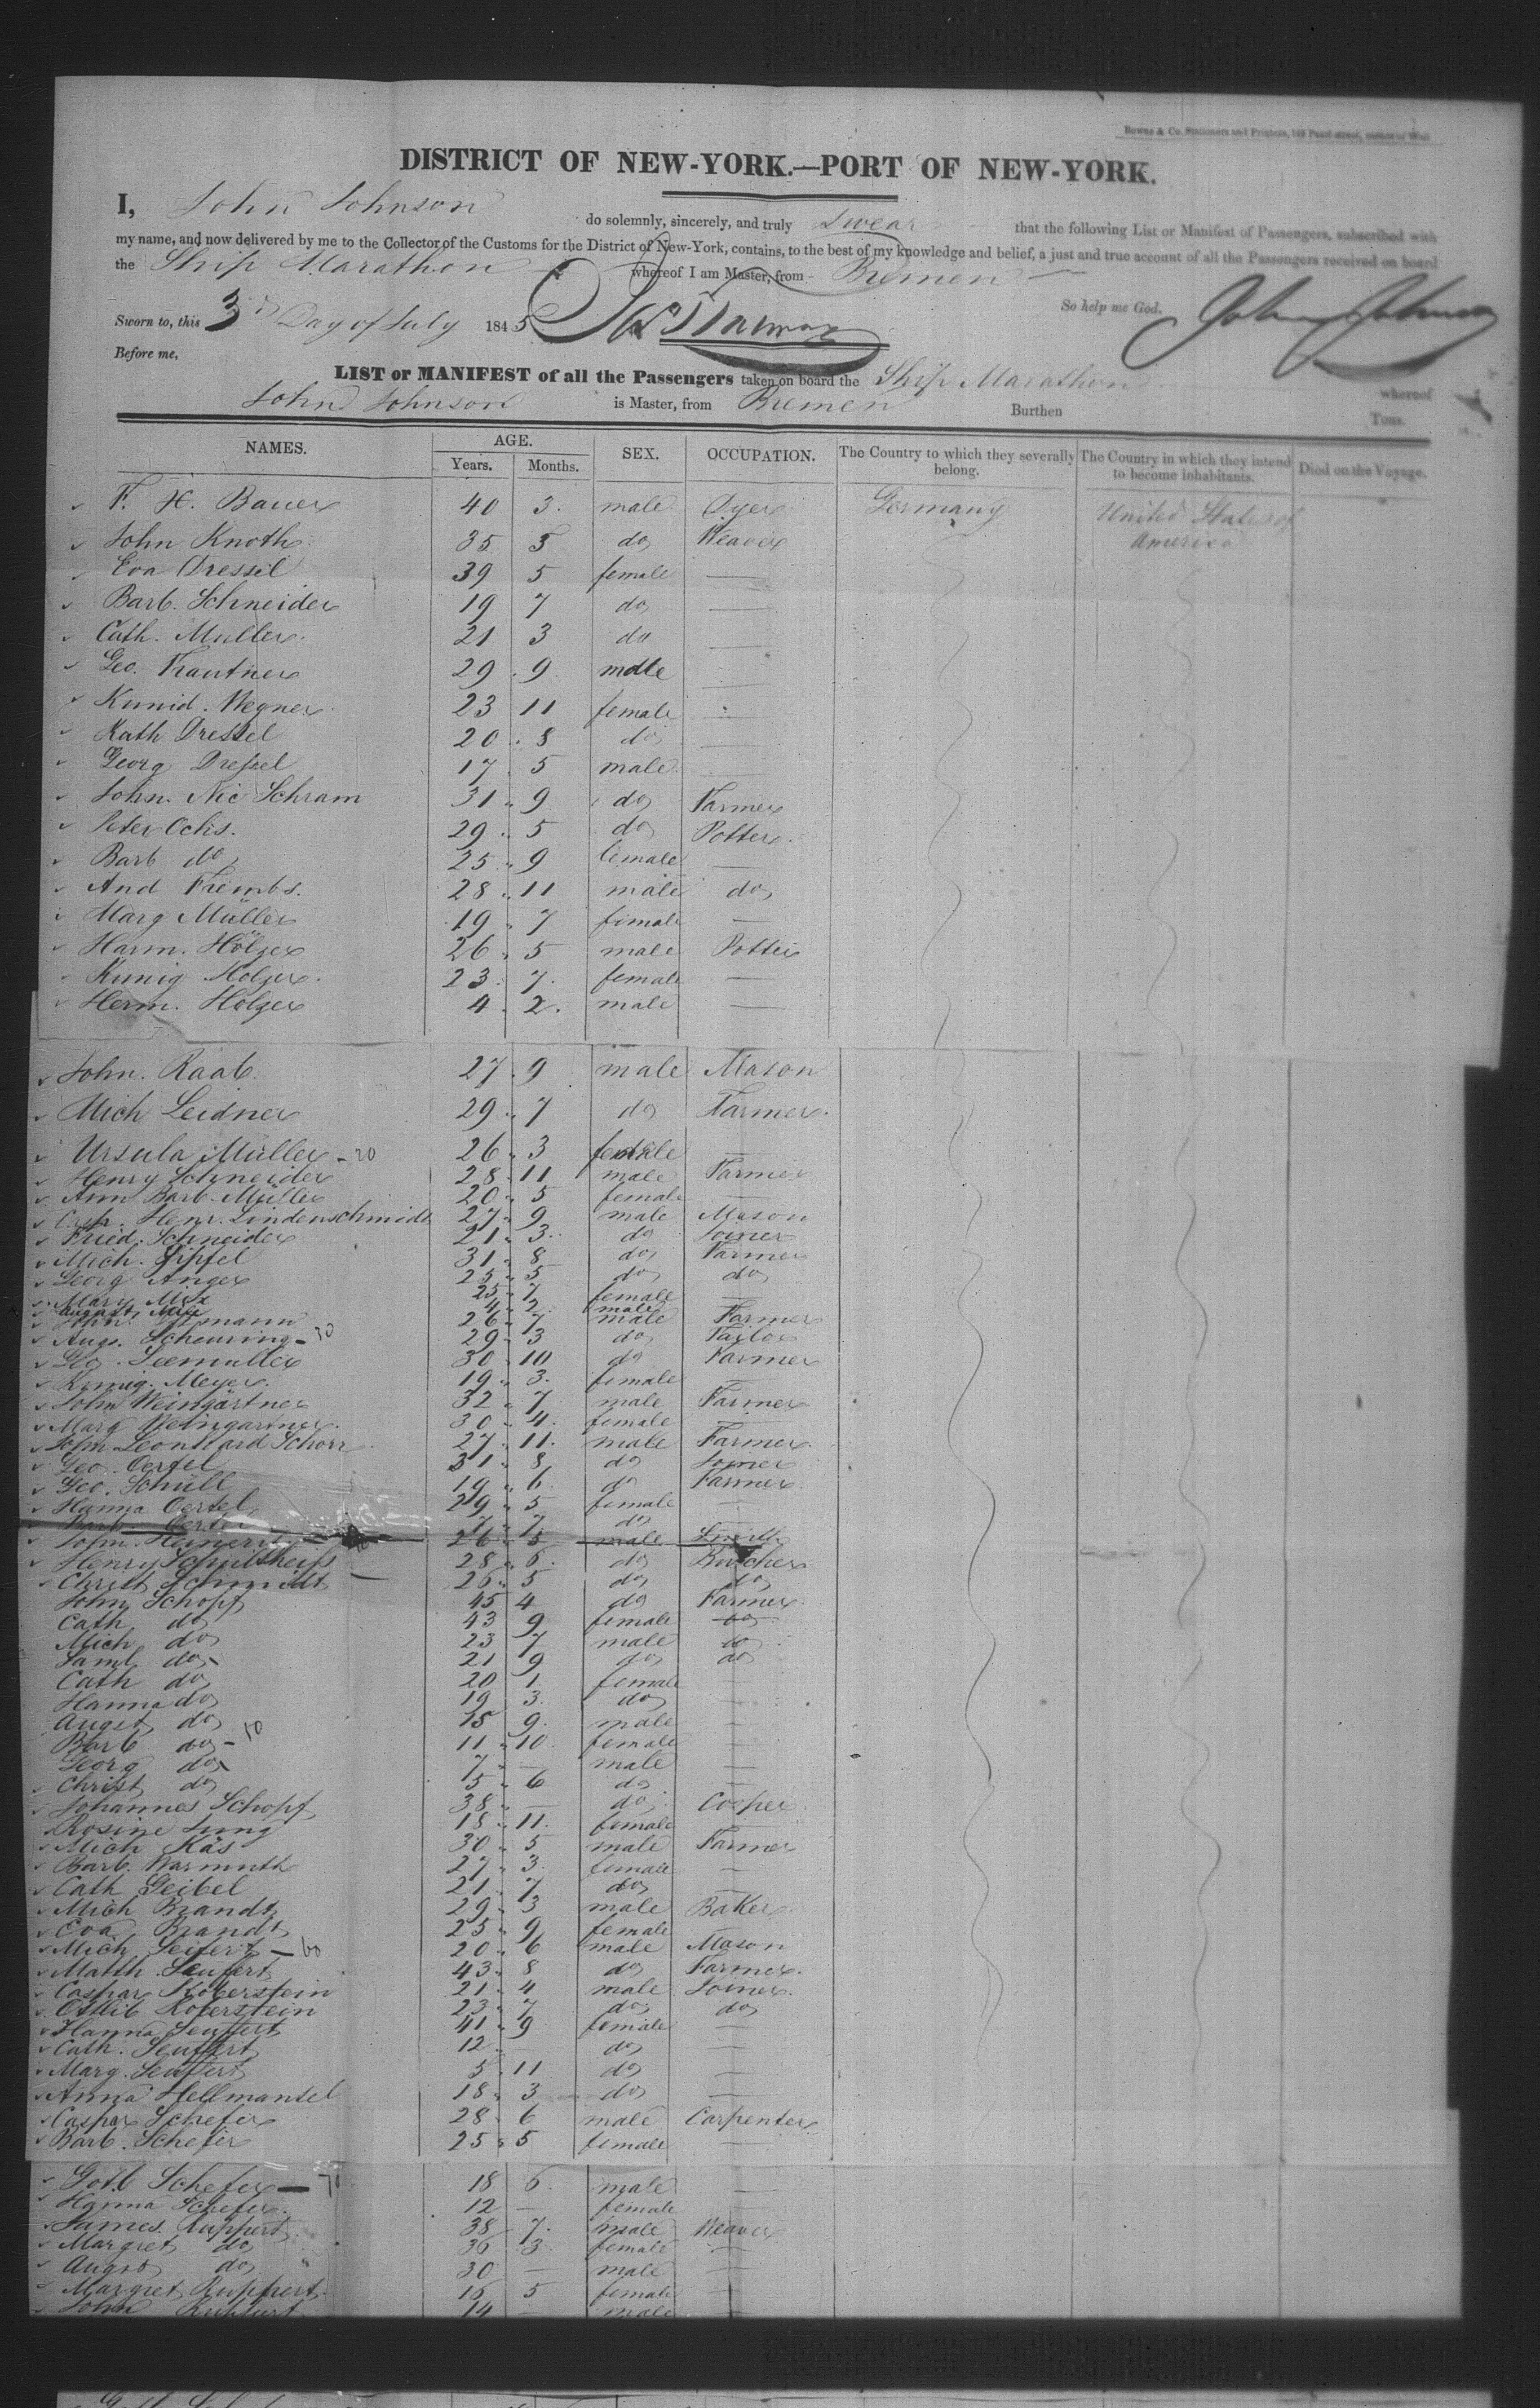 Bowne & Co. Stationers and Printers, 149 Pearl-street, corner of Wall
DISTRICT OF NEW-YORK.—PORT OF NEW-YORK.
I, John Johnson do solemnly, sincerely, and truly swear that the following List or Manifest of Passengers, subscribed with
my name, and now delivered by me to the Collector of the Customs for the District of New-York, contains, to the best of my knowledge and belief, a just and true account of all the Passengers received on board
the Ship Marathon whereof I am Master, from Bremen
So help me God. John Johnson
Sworn to, this 3d Day of July 1845
Before me,
LIST or MANIFEST of all the Passengers taken on board the Ship Marathon whereof
John Johnson is Master, from Bremen Burthen Tons.
NAMES. AGE. Years. Months. SEX. OCCUPATION. The Country to which they severally belong. The Country in which they intend to become inhabitants. Died on the Voyage.
F. H. Bauer 40 3. male Dyer Germany United States of America
John Knoth 35 5 do Weaver
Eva Dressil 39 5 female —
Barb. Schneider 19 7 do —
Cath. Muller 21 3 do —
Geo. Trautner 29 9 male —
Kunid. Wegner 23 11 female
Kath Dressel 20 8 do —
Georg Dressel 17 5 male —
John. Nic Schram 31 9 do Farmer
Peter Ochs. 29 5 do Potter.
Barb do 25 9 female —
And Frembs. 28 11 male do
Marg Müller 19 7 female —
Harm. Hölzer 26 5 male Potter
Kunig Holzer. 23 7. female —
Herm. Hölzer 4 2. male —
John. Raab 27 9 male Mason
Mich Leidner 29 7 do Farmer.
Ursula Müller - 20 26 3 female —
Henry Schneider 28 11 male Farmer
Ann Barb. Müller 20 5 female —
Henr. Lindenschmidt 27 9 male Mason
Fried. Schneider 21 3. do Joiner
Mich. 31 8 do Farmer
Georg Anger 25 5 do do
Mary Mix 25 7 female —
August 4 2 male
John 26 7 male Farmer
Augs. Scheuring - 30 29 3 do Tailor
Geo. Seemuller 30 10 do Farmer
Kunig. Meyer. 19 3. female —
John Weingärtner 32 7 male Farmer
Marg Weingartner. 30 4. female —
John Leonhard Schorr 27 11. male Farmer.
Geo. Oertel 31 8 do Joiner
Geo. Schüll 19 6 do Farmer
Hanna Oertel 29 5 female —
Barb. Oertel 7 7 do —
John 26 5 male Smith
Henry Schultheiss 28 6. do Butcher
Christ Schmidt 26 5 do do
John Schopf 45 4 do Farmer.
Cath do 43 9 female do
Mich do 23 7 male do
Saml do 21 9 do do
Cath do 20 1 female —
Hanna do 19 3. do —
August do 15 9. male —
Barb do - 50 11 10. female —
Georg do 7 — male —
Christ do 5 6 do —
Johannes Schopf 38 — do Cooper
Rosine Jung 18 11. female
Mich Käs 30 5 male Farmer
Barb. Warmuth 27 3. female —
Cath Geibel 21 7 do —
Mich Brandt 29 3 male Baker
Eva Brandt 25 9 female —
Mich Seifert - 60 20 6 male Mason
Matth. Seufert 43 8 do Farmer.
Caspar Koberstein 21 4 male Joiner.
Koberstein 23 7 do do
Hanna Seuffert 41 9 female —
Cath. Seuffert 12 — do —
Marg. Seuffert 5 11 do —
Anna Hellmansel 18 3 do —
Caspar Schefer 28 6 male Carpenter
Barb. Schefer 25 5 female —
Gotl Schefer — 70 18 6. male —
Hanna Schefer. 12 — female —
James Ruppert 38 7. male Weaver
Margret do 36 3 female —
August do 30 — male —
Margret Ruppert 16 5 female —
John Ruppert 14 — male —